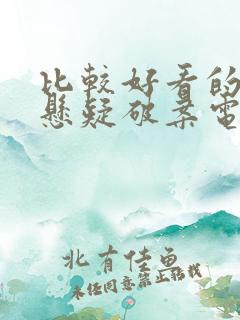 比較好看的
懸疑破案電
北有佳魚
未经同意禁止转载